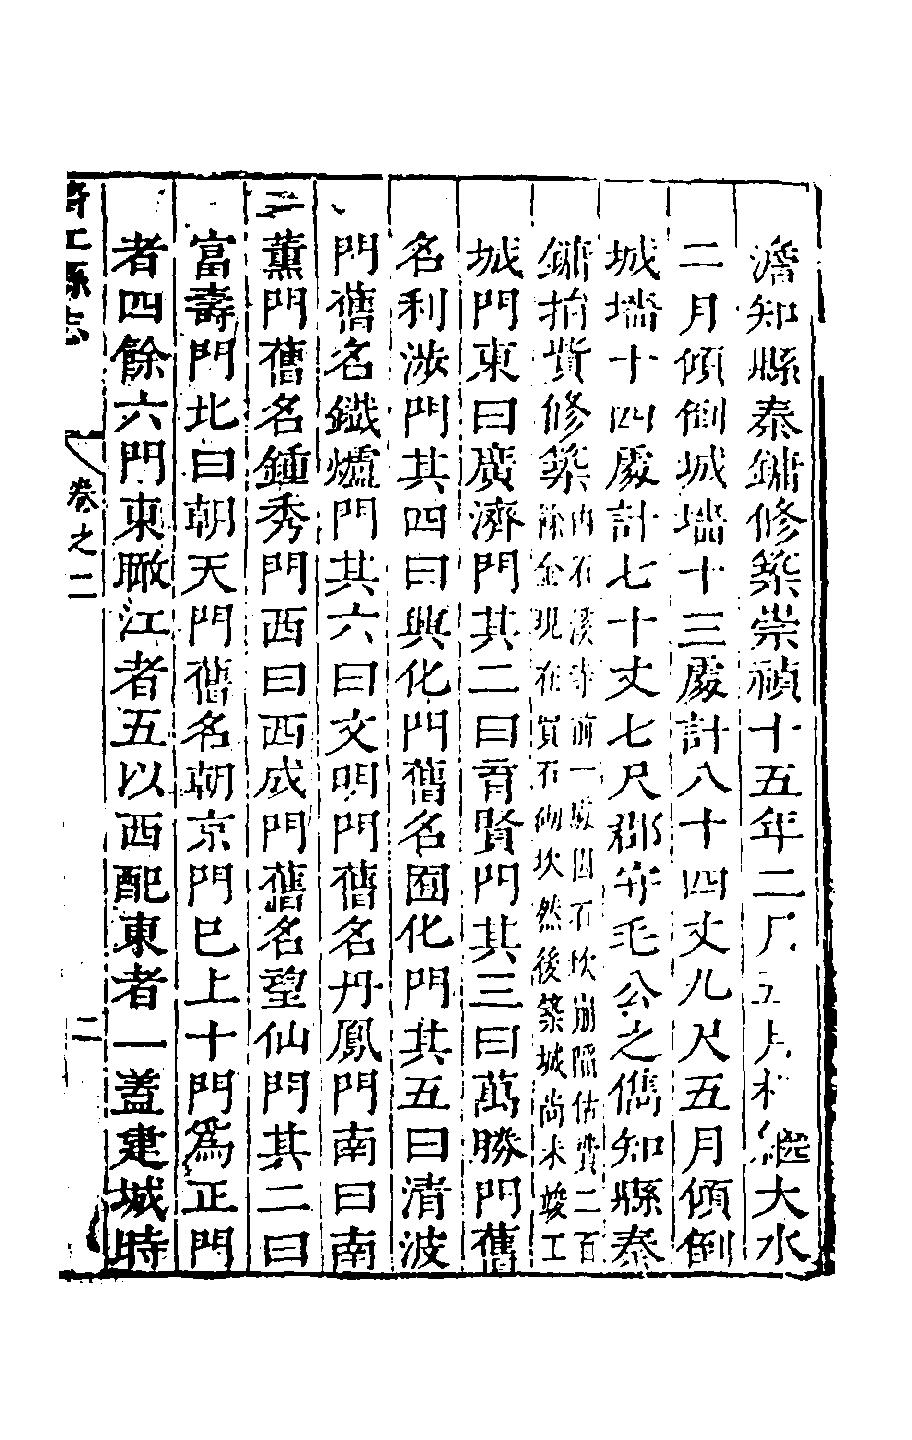 澹知縣秦鏞修築崇禎十五年二月五月相繼大水
二月傾倒城墻十三處計八十四丈九尺五月傾倒
城墻十四處計七十丈七尺郡守毛公之儁知縣秦
鏞捐貲修築內石溪寺前一處因石坎崩陷估費二百
餘金現在買石砌坎然後築城尚未竣工
城門東曰廣濟門其二曰育賢門其三曰萬勝門舊
名利涉門其四曰興化門舊名囿化門其五曰清波
門舊名鐵爐門其六曰文明門舊名丹鳳門南曰南
薰門舊名鍾秀門西曰西成門舊名望仙門其二曰
富壽門北曰朝天門舊名朝京門巳上十門爲正門
者四餘六門東瞰江者五以西配東者一蓋建城時
江縣志
卷之二
二